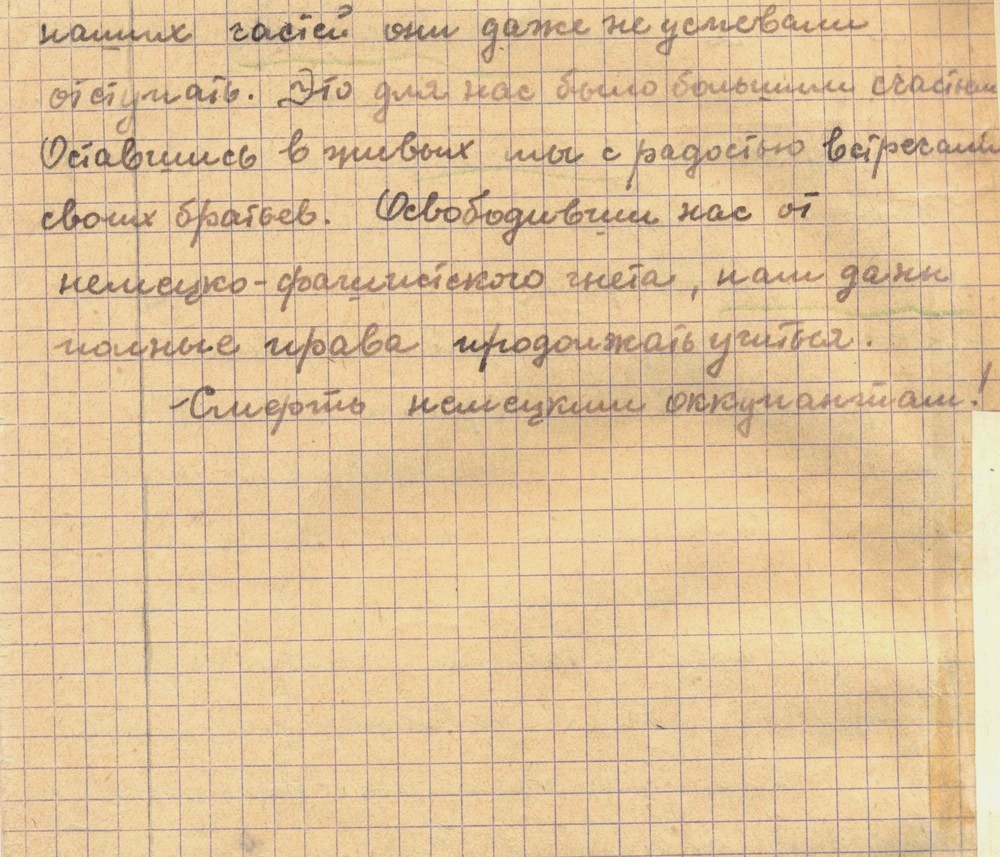 наших частей они даже не успевали
отступать. Это для нас было большим счастьем
Оставшись в живых мы с радостью встречали
своих братьев. Освободивши нас от
немецко-фашистского гнета, нам даны
полные права продолжать учиться.
-Смерть немецким оккупантам!